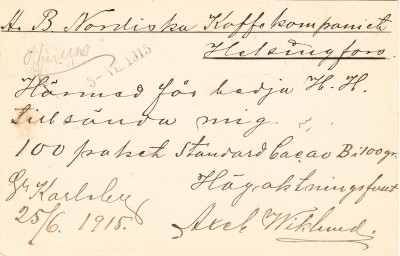 A. B. Nordiska Kaffekompaniet
Helsingfors.
5-VI.1915
Härmed får bedja H. H.
tillsända mig.
100 paket Standard Cacao B: 100 gr.
Högaktningsfullt
Gr Karlsby
25/6. 1915.
Axel Wiklund.